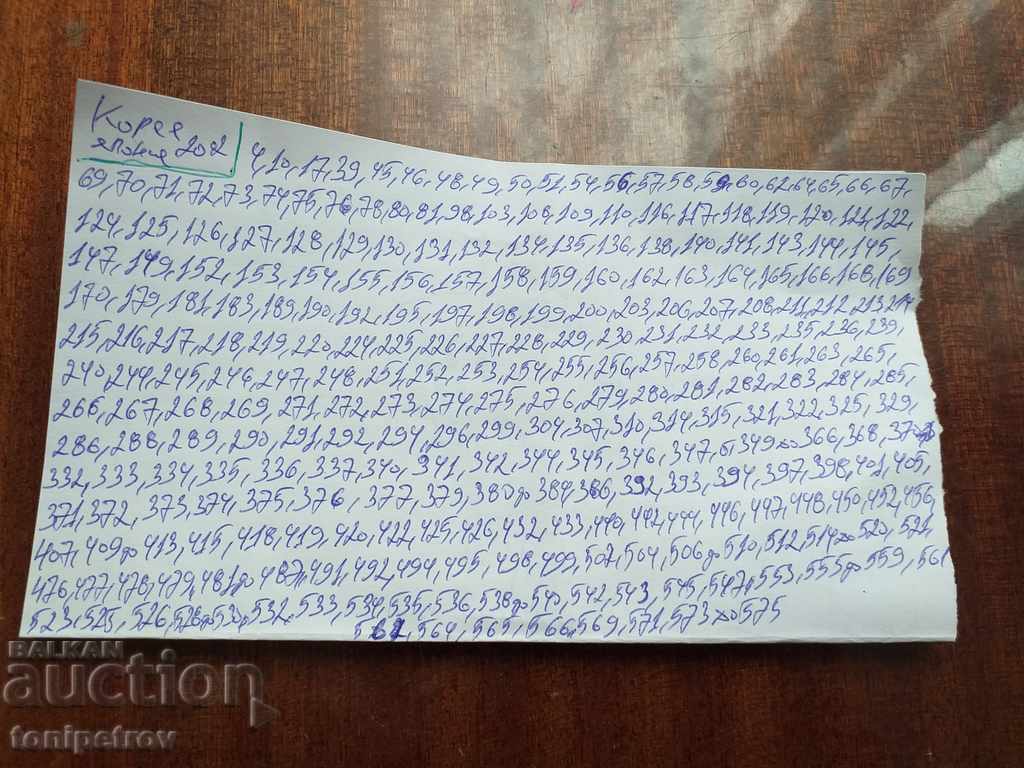 Корея
Япония 2002
4,10,17,39,45,46,48,49,50,51,54,56,57,58,59,60,62,64,65,66,67,
69,70,71,72,73,74,75,76,78,80,81,98,103,108,109,110,116,117,118,119,120,121,122,
124,125,126,127,128,129,130,131,132,134,135,136,138,140,141,143,144,145,
147,149,152,153,154,155,156,157,158,159,160,162,163,164,165,166,168,169
170,179,181,183,189,190,192,195,197,198,199,200,203,206,207,208,211,212,213,214
215,216,217,218,219,220,224,225,226,227,228,229,230,231,232,233,235,236,239,
240,244,245,246,247,248,251,252,253,254,255,256,257,258,260,261,263,265,
266,267,268,269,271,272,273,274,275,276,279,280,281,282,283,284,285,
286,288,289,290,291,292,294,296,299,304,307,310,314,315,321,322,325,329,
332,333,334,335,336,337,340,341,342,344,345,346,347,349 до 366,368,370
371,372,373,374,375,376,377,379,380 до 384,386,392,393,394,397,398,401,405,
407,409 до 413,415,418,419,420,422,425,426,432,433,440,442,444,446,447,448,450,452,456,
476,477,478,479,481 до 487,491,492,494,495,498,499,502,504,506 до 510,512,514 до 520,521,
523,525,526,528 до 530,532,533,534,535,536,538 до 540,542,543,545,547 до 553,555 до 559,561
562,564,565,566,569,571,573 до 575
BALKAN
auction
tonipetrov